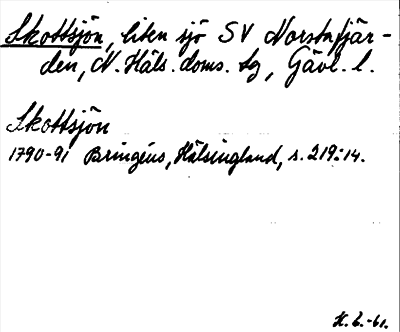 Skottsjön, liten sjö SV Norstafjär-
den, N. Häls. doms. tg, Gävl. l.
Skottsjön
1790-91 Bringéus, Hälsingland, s. 219:14.
H. L.-61.